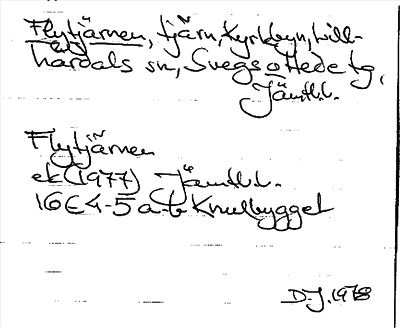 Flytjärnen, tjärn, Kyrkbyn, Lill-
härdals sn, Svegs o Hede tg,
Jämtl.l.
Flytjärnen
ek (1977) Jämtl.l.
16E 4-5 a-b Knulbygget
D-J. 1978